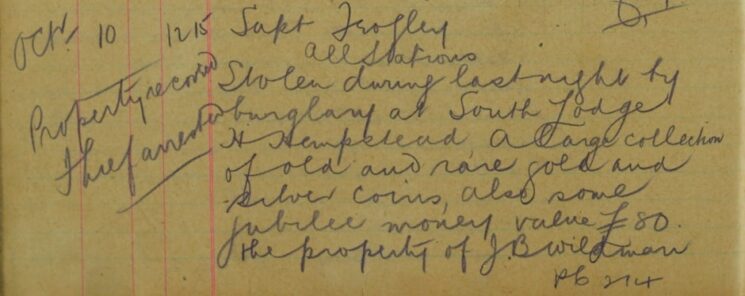 Octr 10 1215 Supt Frogley
All Stations
Property recovered
Thief arrested
Stolen during last night by
burglary at South Lodge
H Hempstead, A large collection
of old and rare gold and
silver coins, also some
jubilee money value £80.
the property of J.B Wildman
PC 274